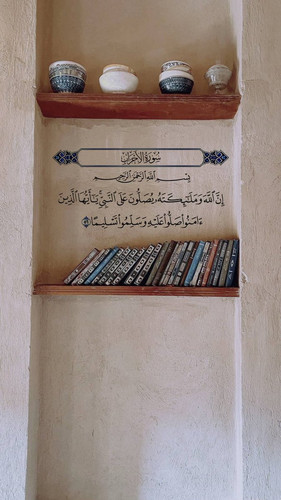 سُورَةُ الأَحْزَابِ
بِسْمِ اللَّهِ الرَّحْمَٰنِ الرَّحِيمِ
إِنَّ ٱللَّهَ وَمَلَٰٓئِكَتَهُۥ يُصَلُّونَ عَلَى ٱلنَّبِيِّ يَٰٓأَيُّهَا ٱلَّذِينَ
ءَامَنُوا۟ صَلُّوا۟ عَلَيْهِ وَسَلِّمُوا۟ تَسْلِيمًا ٥٦